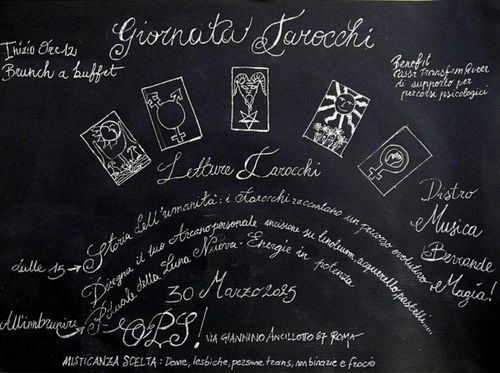 Giornata Tarocchi
Inizio Ore 12
Brunch a buffet
Benefit
CassaTransfemQueer
di supporto per
percorsi psicologici
Letture Tarocchi
dalle 15 → Storia dell'umanità: i Tarocchi raccontano un percorso evolutivo
Disegna il tuo Arcano personale incisione su linoleum, acquerello, pastelli.....
All'imbrunire → Rituale della Luna Nuova: Energie in potenza
Distro
Musica
Bevande
e Magia!
30 Marzo 2025
OPS! VIA GIANNINO ANCILLOTTO 67 ROMA
MISTICANZA SCELTA: Donne, lesbiche, persone trans, non binarie e frocio